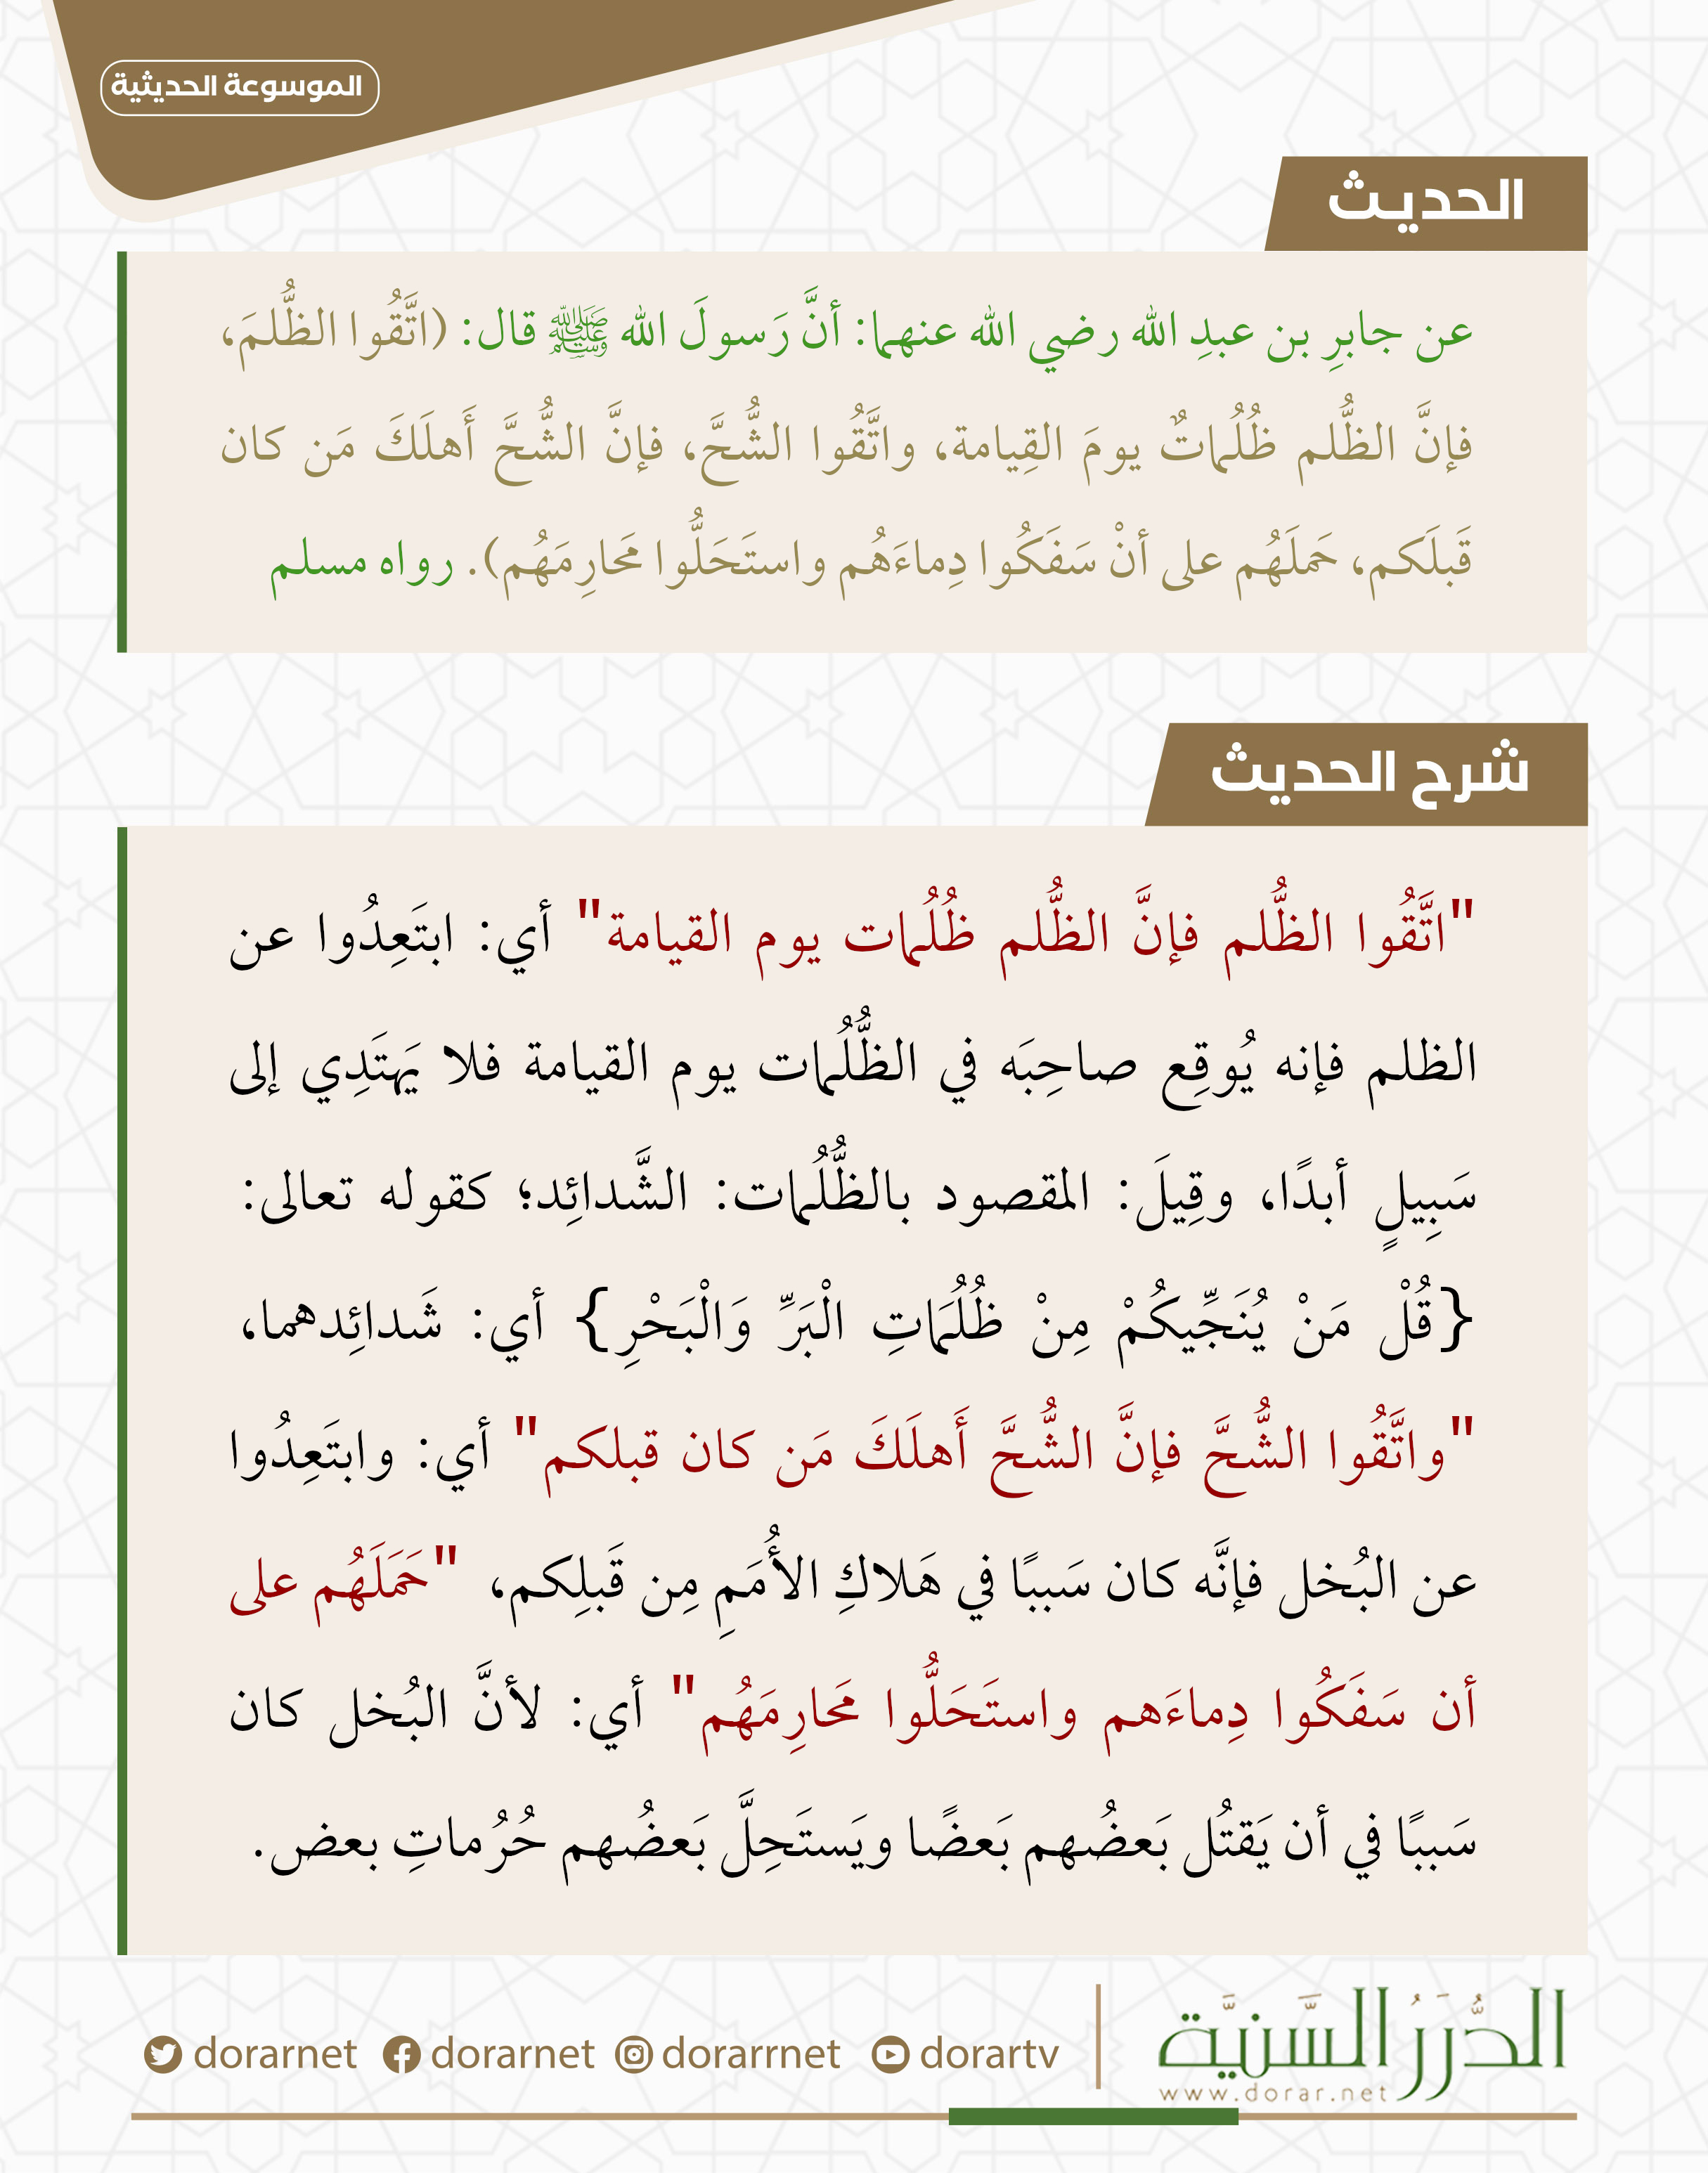 الموسوعة الحديثية
الحديث
عن جابرِ بن عبدِ الله رضي الله عنهما: أنَّ رَسولَ الله ﷺ قال: (اتَّقُوا الظُّلمَ،
فإنَّ الظُّلم ظُلُماتٌ يومَ القِيامة، واتَّقُوا الشُّحَّ، فإنَّ الشُّحَّ أَهلَكَ مَن كان
قَبلَكم، حَملَهُم على أنْ سَفَكُوا دِماءَهُم واستَحَلُّوا مَحارِمَهُم). رواه مسلم
شرح الحديث
"اتَّقُوا الظُّلم فإنَّ الظُّلم ظُلُمات يوم القيامة" أي: ابتَعِدُوا عن
الظلم فإنه يُوقِع صاحِبَه في الظُّلُمات يوم القيامة فلا يَهتَدِي إلى
سَبِيلٍ أبدًا، وقِيلَ: المقصود بالظُّلُمات: الشَّدائِد؛ كقوله تعالى:
{قُلْ مَنْ يُنَجِّيكُمْ مِنْ ظُلُمَاتِ الْبَرِّ وَالْبَحْرِ} أي: شَدائِدهما،
"واتَّقُوا الشُّحَّ فإنَّ الشُّحَّ أَهلَكَ مَن كان قبلكم" أي: وابتَعِدُوا
عن البُخل فإنَّه كان سَببًا في هَلاكِ الأُمَمِ مِن قَبلِكم، "حَمَلَهُم على
أن سَفَكُوا دِماءَهم واستَحَلُّوا مَحارِمَهُم" أي: لأنَّ البُخل كان
سَببًا في أن يَقتُل بَعضُهم بَعضًا ويَستَحِلَّ بَعضُهم حُرُماتِ بعض.
الدُّرَرُ السَّنيَّة
www.dorar.net
dorarnet dorarnet dorarrnet dorartv